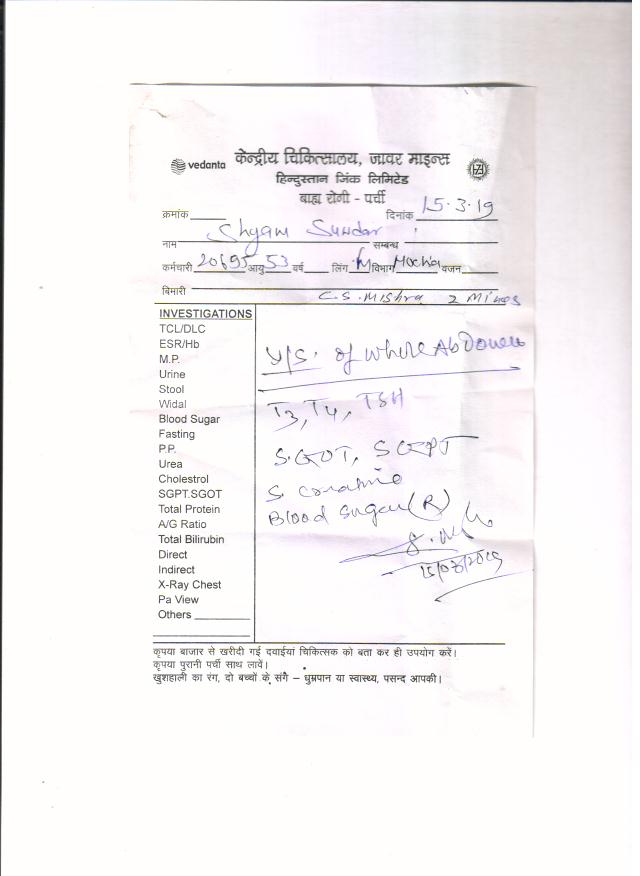 vedanta केन्द्रीय चिकित्सालय, जावर माइन्स
हिन्दुस्तान जिंक लिमिटेड
बाह्य रोगी - पर्ची
क्रमांक दिनांक 15.3.19
नाम Shyam Sundar सम्बन्ध
कर्मचारी 20695 आयु 53 वर्ष लिंग M विभाग Mochia वजन
बिमारी C.S. Mishra 2 Mines
INVESTIGATIONS
TCL/DLC
ESR/Hb
M.P.
Urine
Stool
Widal
Blood Sugar
Fasting
P.P.
Urea
Cholestrol
SGPT.SGOT
Total Protein
A/G Ratio
Total Bilirubin
Direct
Indirect
X-Ray Chest
Pa View
Others
of whole Abdomen
T3, T4, TSH
S.GOT, SGPT
S. Creatinine
Blood Sugar (R)
15/03/2019
कृपया बाजार से खरीदी गई दवाईयां चिकित्सक को बता कर ही उपयोग करें।
कृपया पुरानी पर्ची साथ लावें।
खुशहाली का रंग, दो बच्चों के संग – धुम्रपान या स्वास्थ्य, पसन्द आपकी।